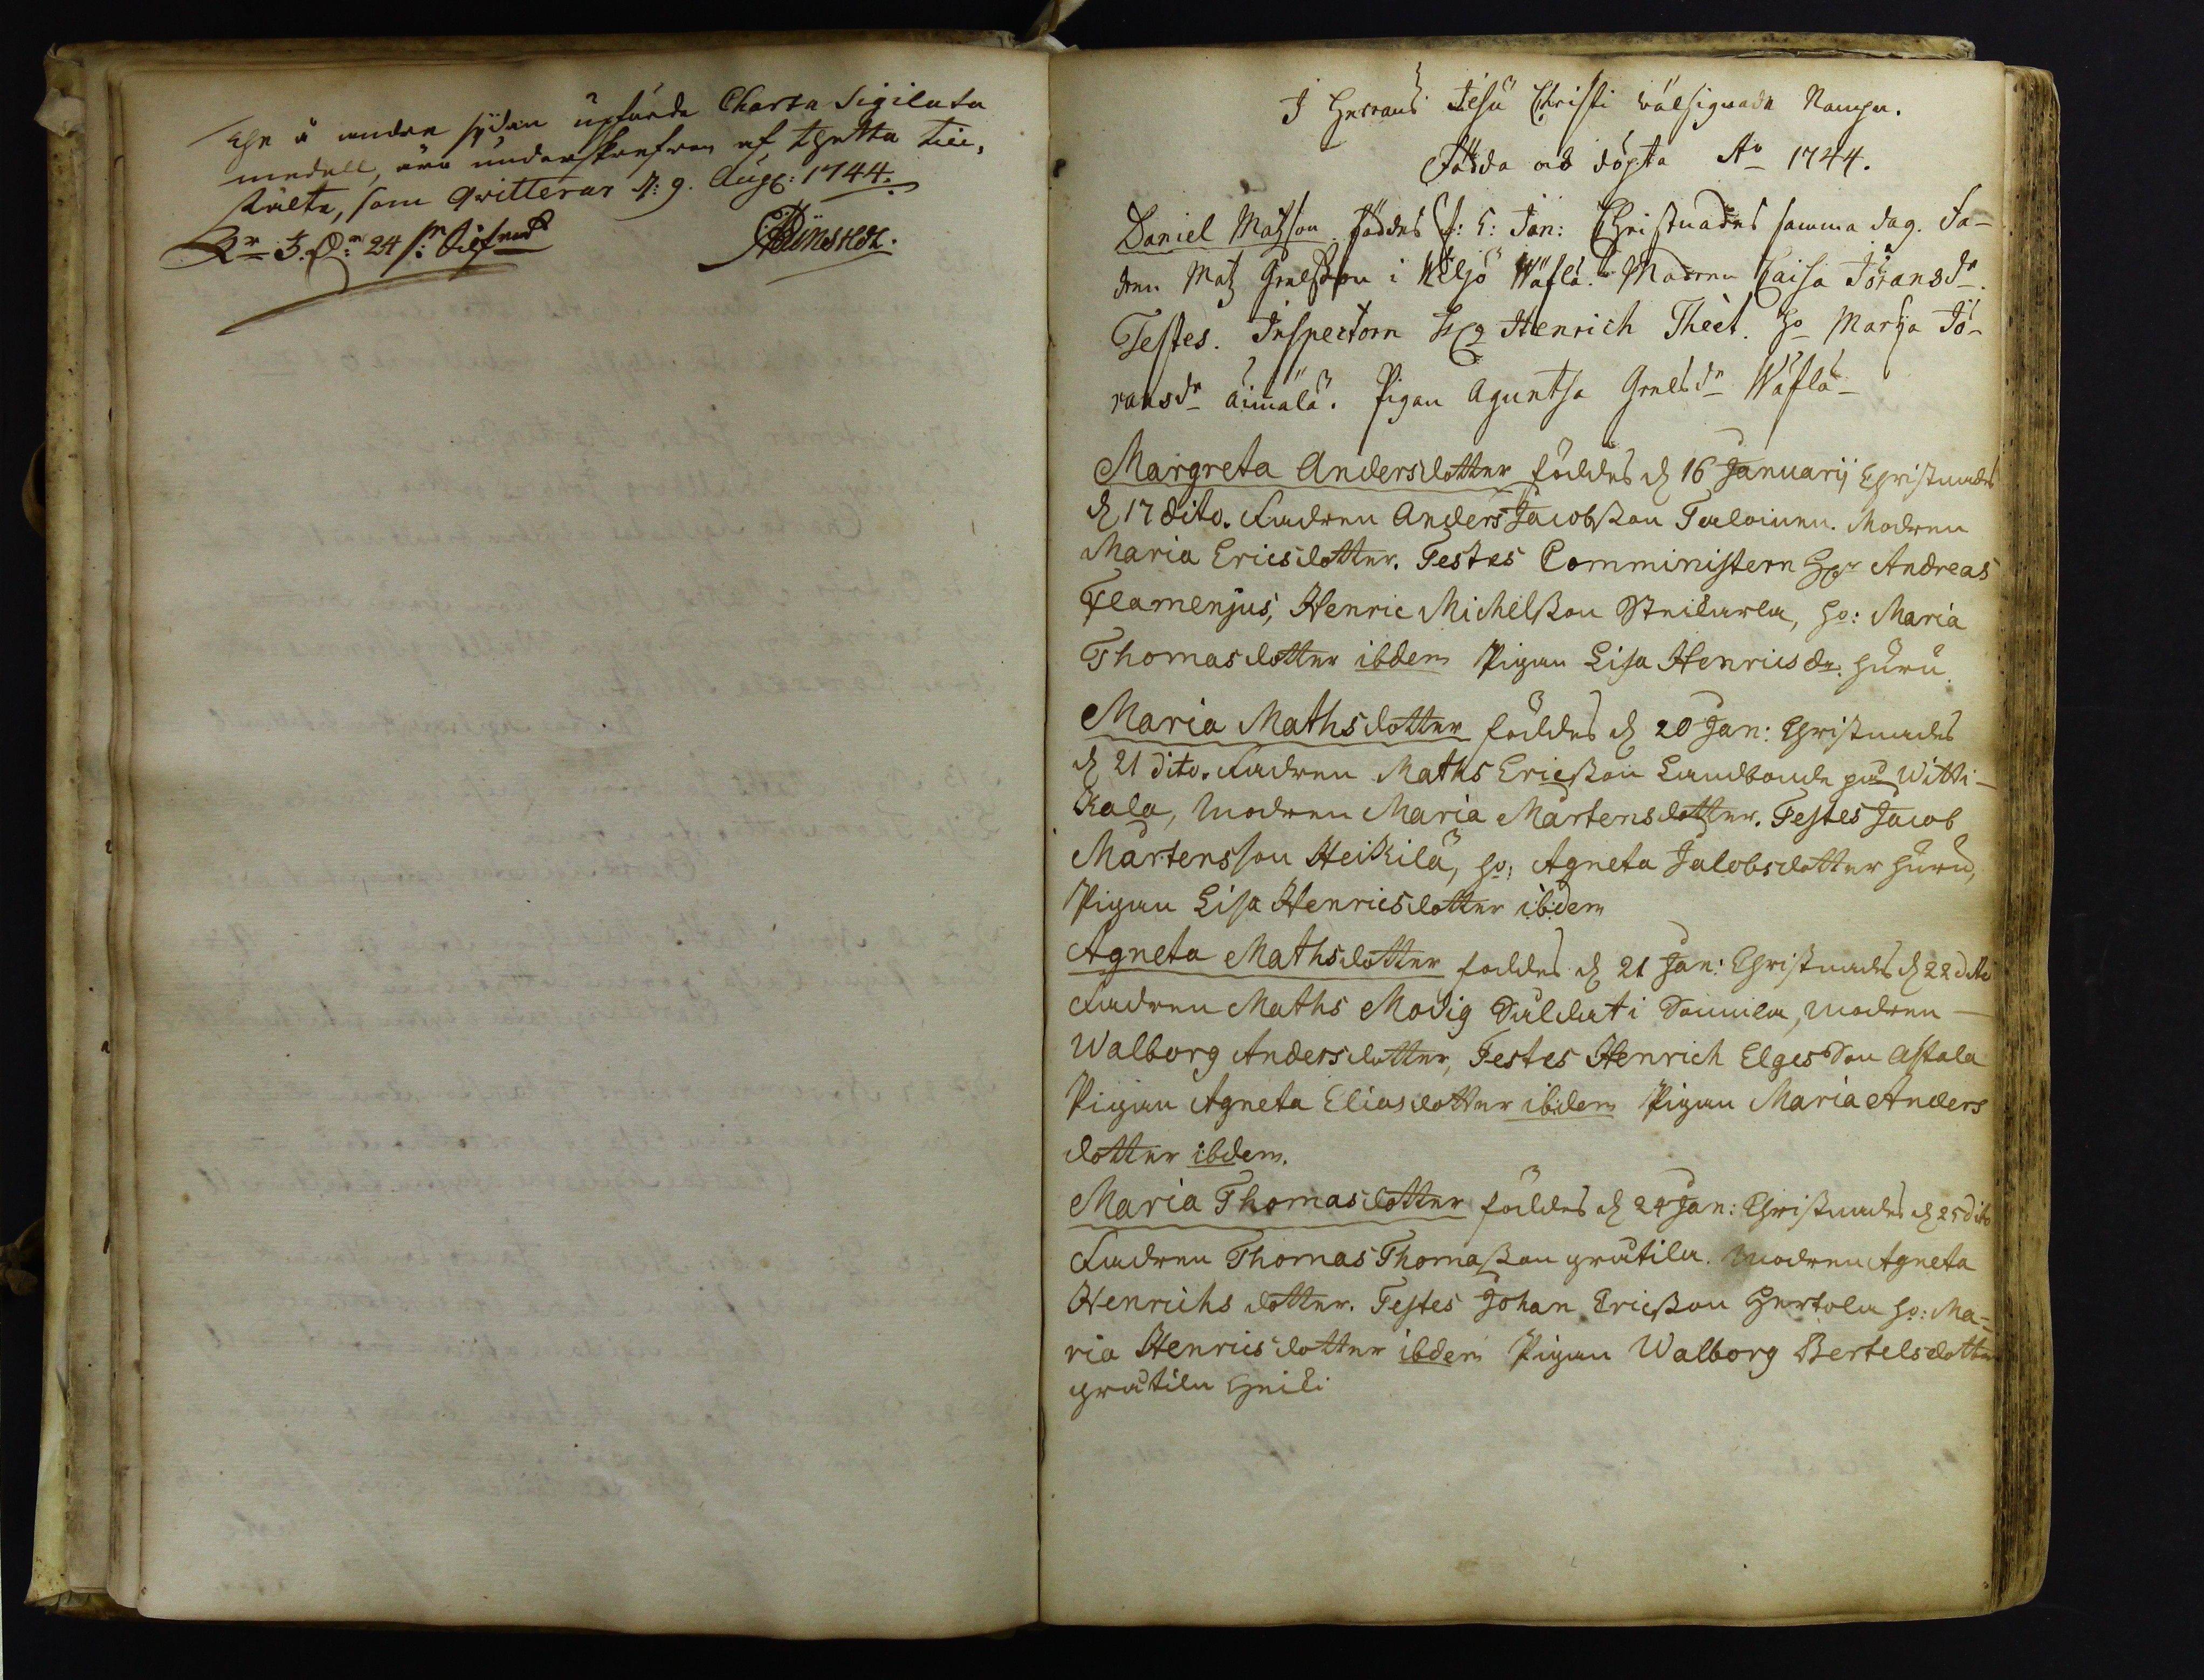 The å andra sydan upförde Charta Sigilata
medell, äro underskrefven af thetta till,
stälte, som qvitteras d: 9. Aug: 1744.
I Herrans Jesu Christi välsignade Nampn.
Födda ock döpta Ao 1744.
Daniel Matzson föddes d: 5: Jan: Christnades samma dag. Fa-
dren Matz Grelsson i Kiljo Wäflä. Modren Caisa Jöransdr.
Testes. Inspectorn Hr Henrich Theet. ho Marja Jö-
ransdr äimälä. Pigan Aguntha Grelsdr Wäflä
Margreta Andersdotter föddes d 16 Januarij Christnades
d 17 dito. Fadren Anders Jacobsson Taloinen. Modren
Maria Ericsdotter. Testes Comministern Hr Andreas
Flamenjus, Henric Michelsson Steikarla, ho: Maria
Thomasdotter ibdem Pigan Lisa Henricsdr. huru.
Maria Mathsdotter föddes d 20 Jan: Christnades
d 21 dito. Fadren Maths Ericsson Landbonde på Witti-
kala, Modren Maria Mårtensdotter. Testes Jacob
Mårtensson Heikilä, ho: Agneta Jalobsdotter huru,
Pigan Lisa Henricsdotter ibidem
Agneta Mathsdotter föddes d 21 Jan: Christnades d 22 dito
Fadren Maths Modig Saldat i Sannila, modren
Walborg Andersdotter, Testes Henrich Elgesson Astala
Pigan Agneta Eliasdotter ibidem Pigan Maria Anders
dotter ibdem.
Maria Thomasdotter föddes d 24 Jan: Christnades d 25 dito
Fadren Thomas Thomasson grutila. Modren Agneta
Henrichs dotter. Testes Johan Ericsson Hertola ho: Ma-
ria Henricsdotter ibdem Pigan Walborg Bertelsdotter
grutila Heiki